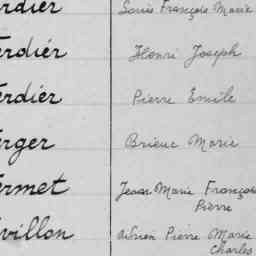 erdier Louis François Marie
erdiér Henri Joseph
erdiér Pierre Emile
erger Brieuc Marie
ermet Jean Marie François
Pierre
villon Adrien Pierre Marie
Charles